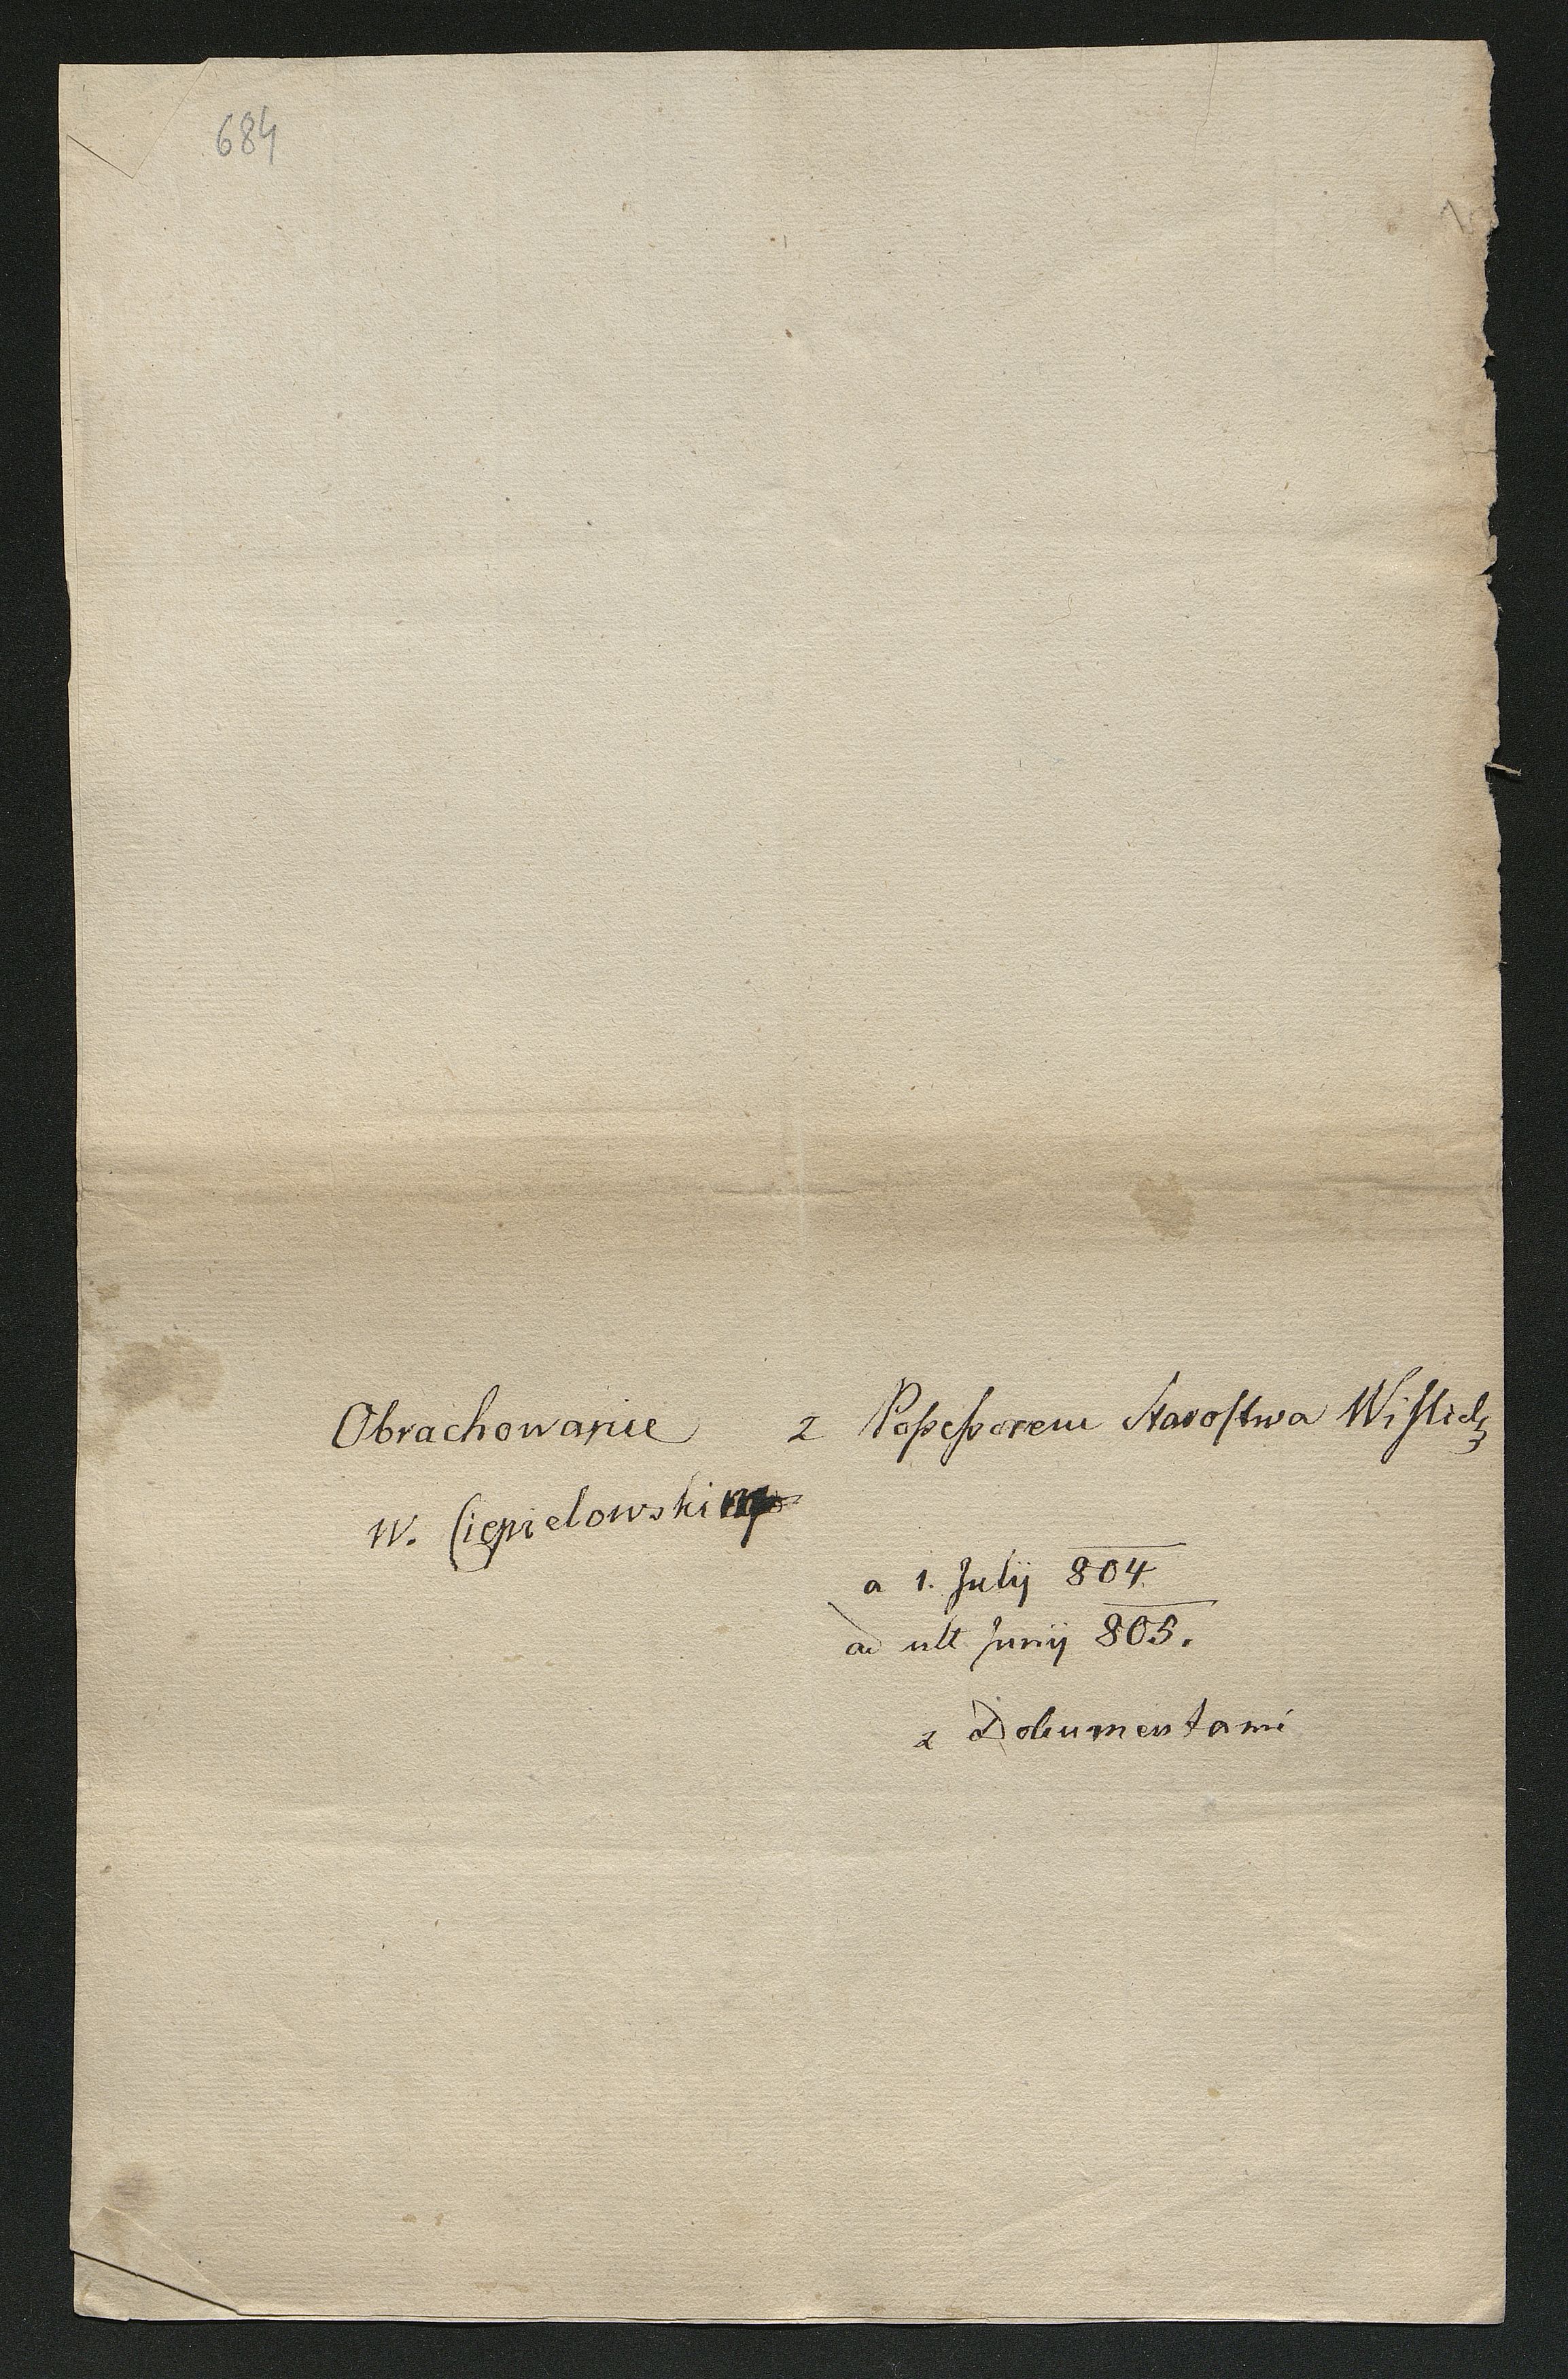 684
Obrachowanie z Possessorem Starostwa Wislick
W. Ciepielowskim
a 1. Julij 804
ad ult Junij 805.
z Dokumentami